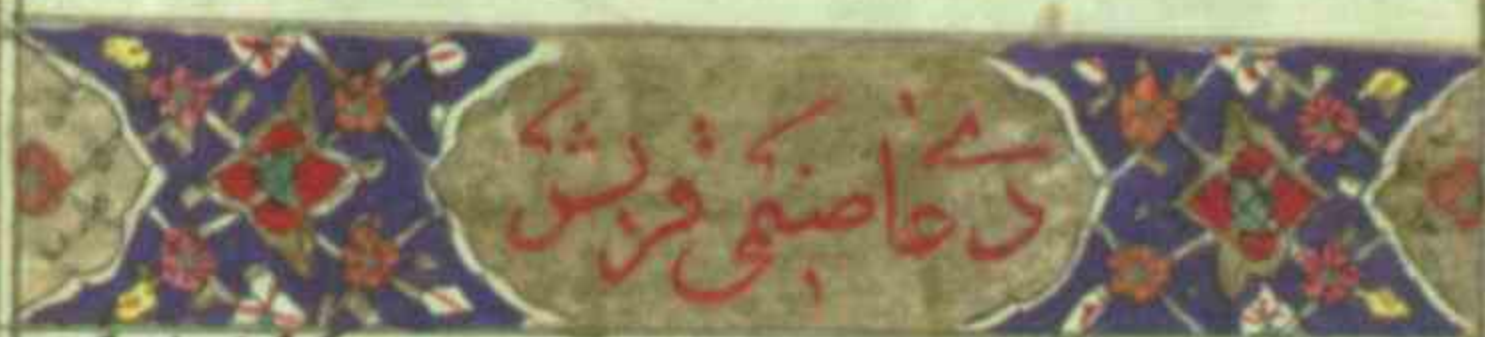 دعاے صنمی قریش